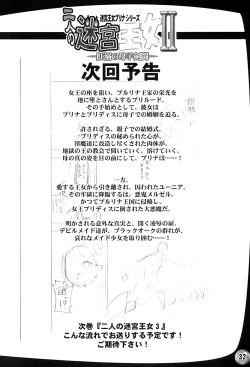 迷宮王女プリナ シリーズ
二人の迷宮王女Ⅱ
次回予告
女王の座を狙い、プルリナ王家の栄光を
地に堕とさんとするプリルード。
その手始めとして、彼女は
プリナとプリディスに母子での婚姻を迫る。
許されざる、親子での結婚式。
プリディスの秘められた心が、
淫魔達に改造し尽くされた肉体が、
地獄の王の教会で開いていく、溶けていく。
母の真の姿を目の前にして、プリナは──！
一方。
愛する王女から引き離され、囚われたユーニア。
その牢獄に降臨するは、悪鬼メルゼル。
かつてプルリナ王国に侵略し、
女王プリディスに倒された大悪魔だ。
明かされる意外な真実と、開く凌辱の扉。
デビルメイド達が、ブラックオークの群れが、
哀れなメイド少女を取り囲む──！
次巻『二人の迷宮王女３』
こんな流れでお送りする予定です！
ご期待下さい！
32